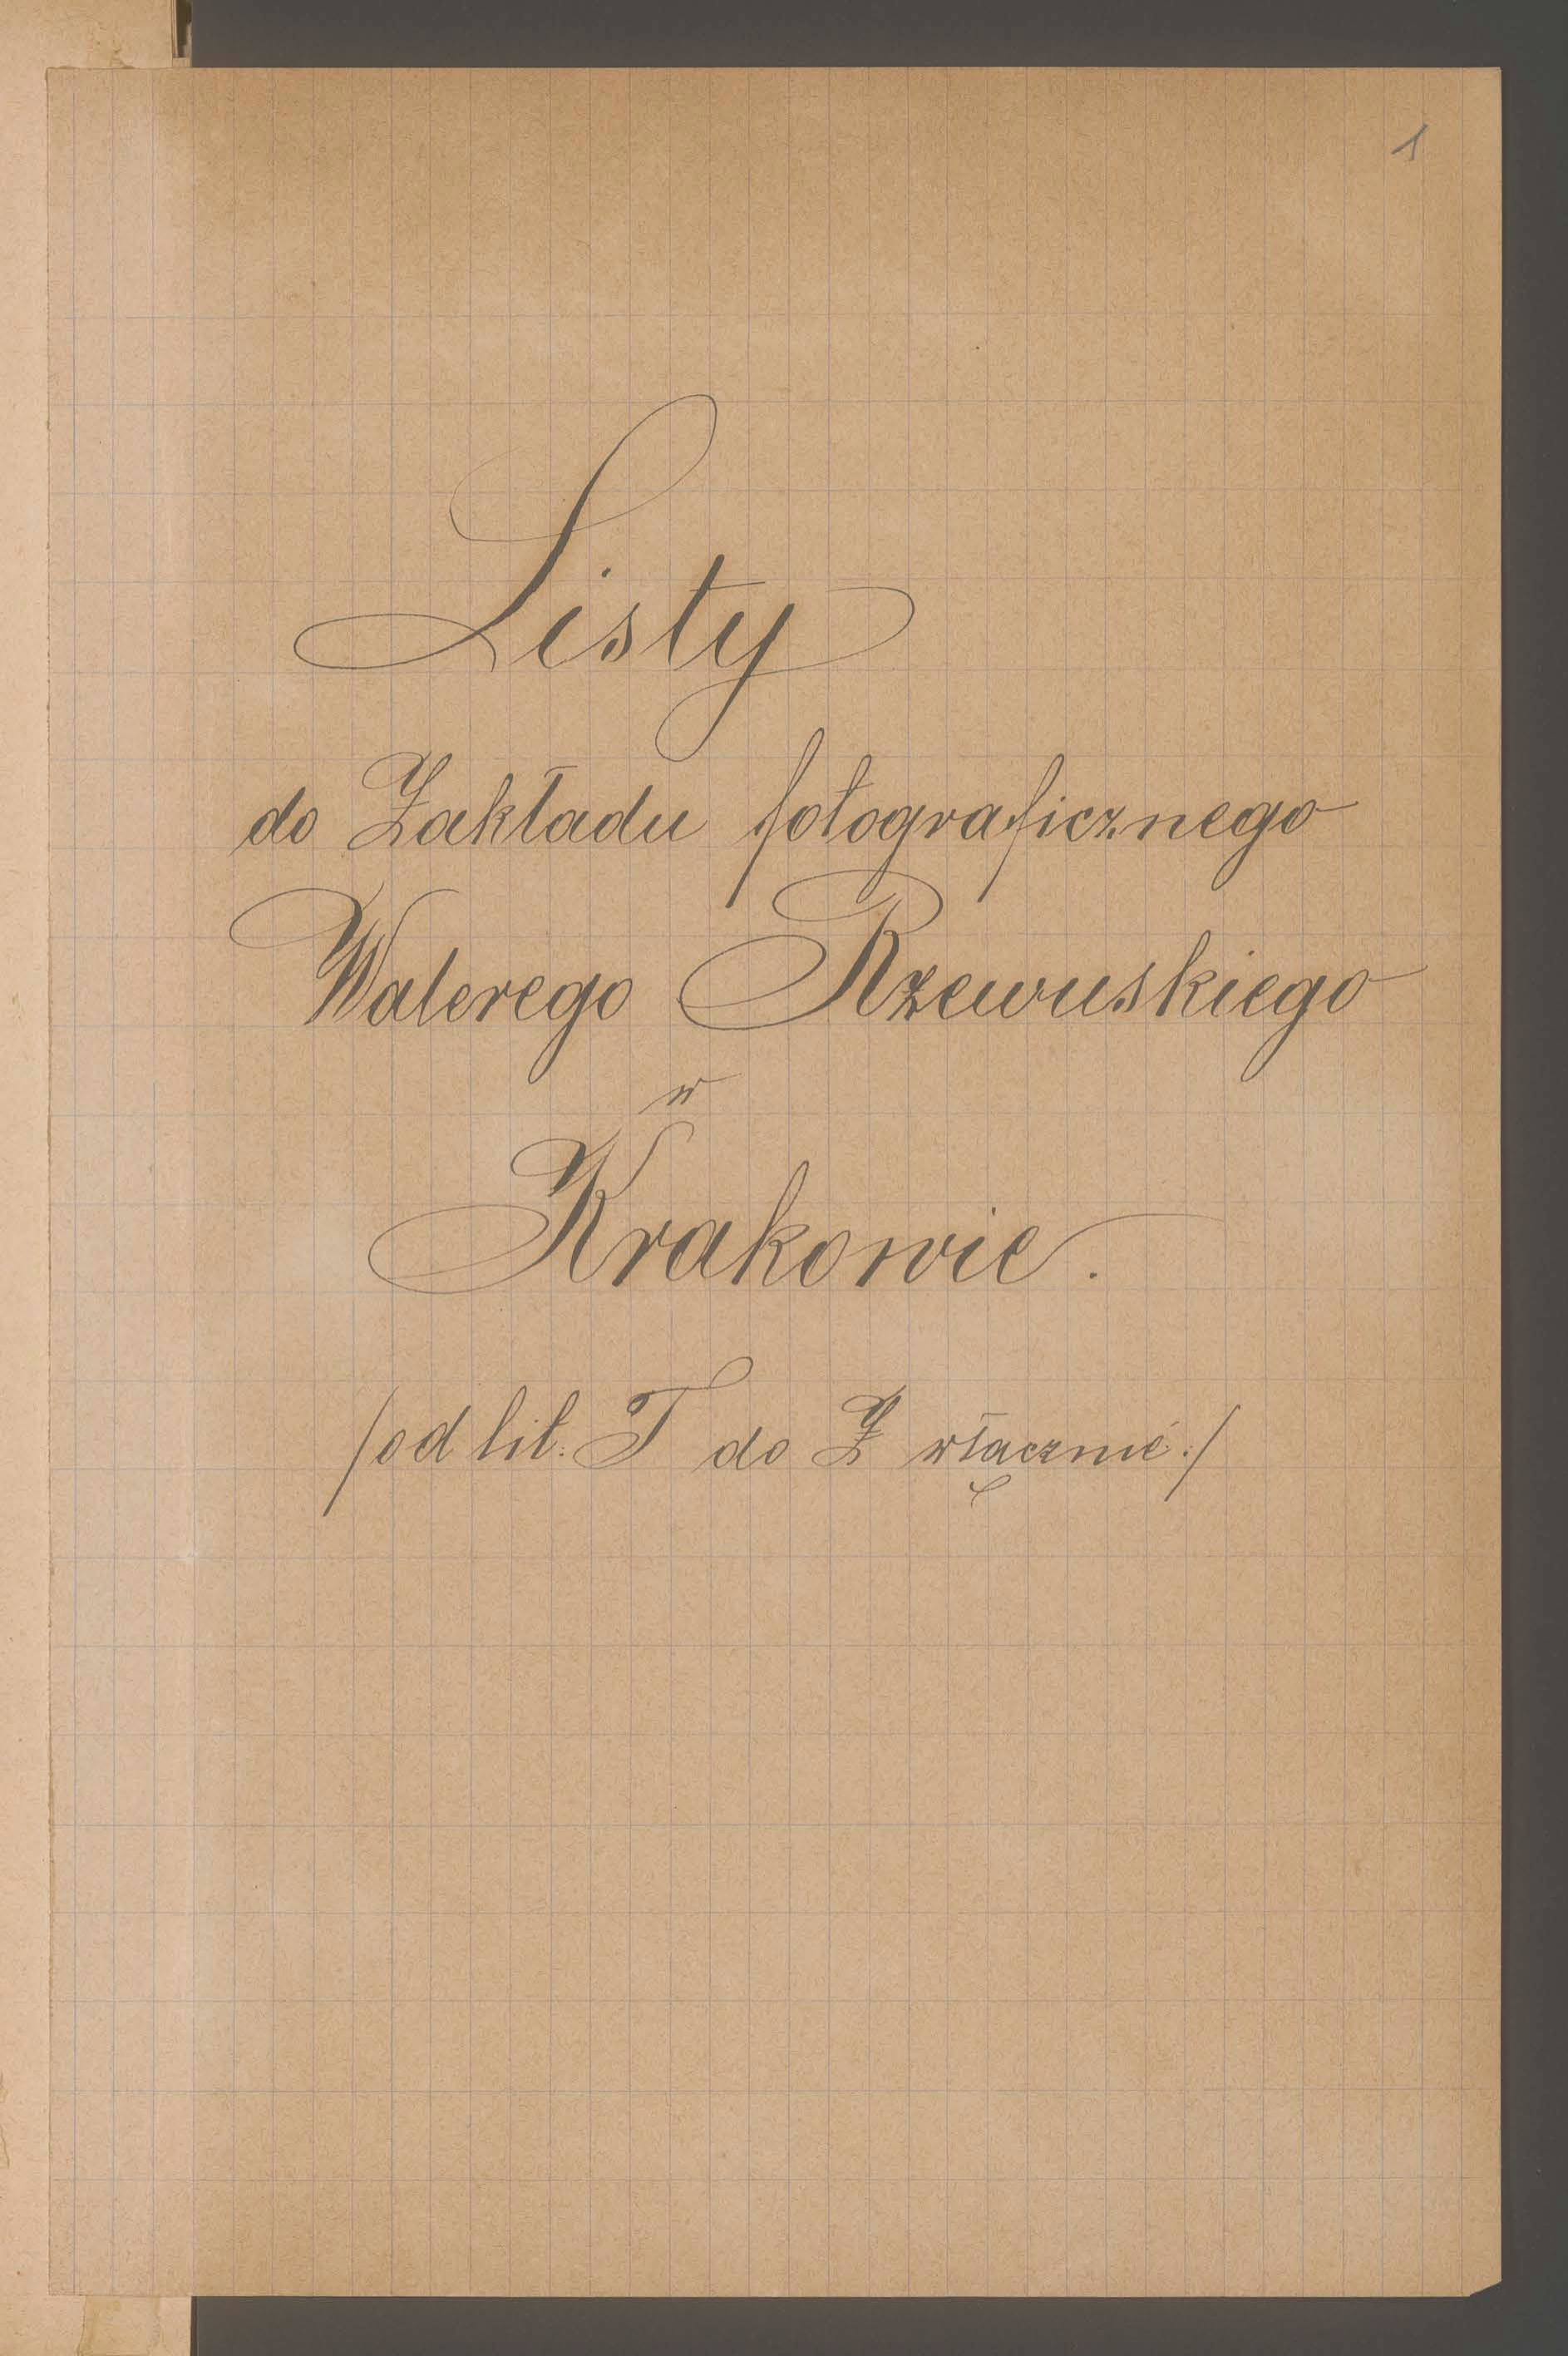 1
Listy
do Zakładu fotograficznego
Walerego Rzewuskiego
w
Krakowie.
/od lit. T do Z włącznie:/